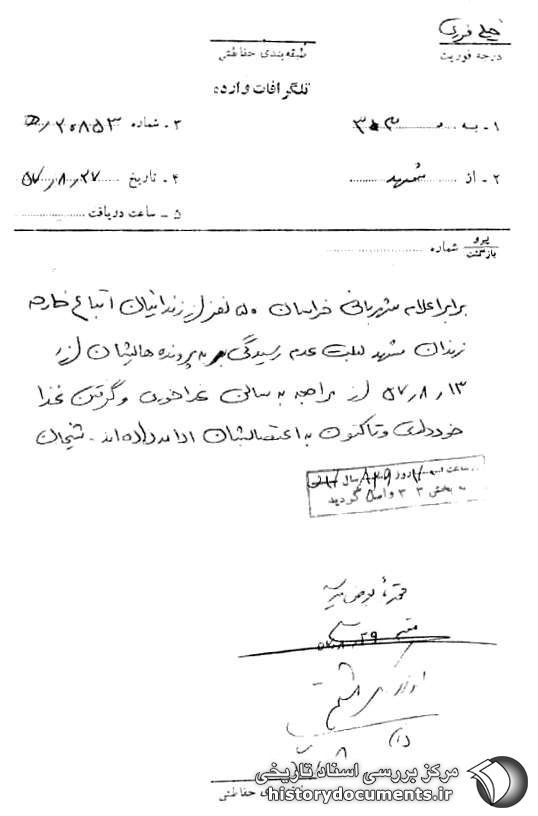 خیلی فوری
درجه فوریت
طبقه‌بندی حفاظتی
تلگرافات وارده
۱ - به ۳۰۳
۳ - شماره ۲۰۸۵۳
۲ - از مشهد
۴ - تاریخ ۵۷٫۸٫۲۷
۵ - ساعت دریافت
پیرو
بازگشت
شماره
برابر اعلام شهربانی خراسان ۵۰ نفر از زندانیان اتباع خارجه
زندان مشهد بعلت عدم رسیدگی به پرونده‌هایشان از
۵۷٫۸٫۱۳ از مراجعه به سالن غذاخوری و گرفتن غذا
خودداری و تاکنون به اعتصابشان ادامه داده‌اند - شیخان
ساعت روز سال
به بخش ۳۳ واصل گردید
۵۷٫۸٫۲۹
حفاظتی
مرکز بررسی اسناد تاریخی
historydocuments.ir